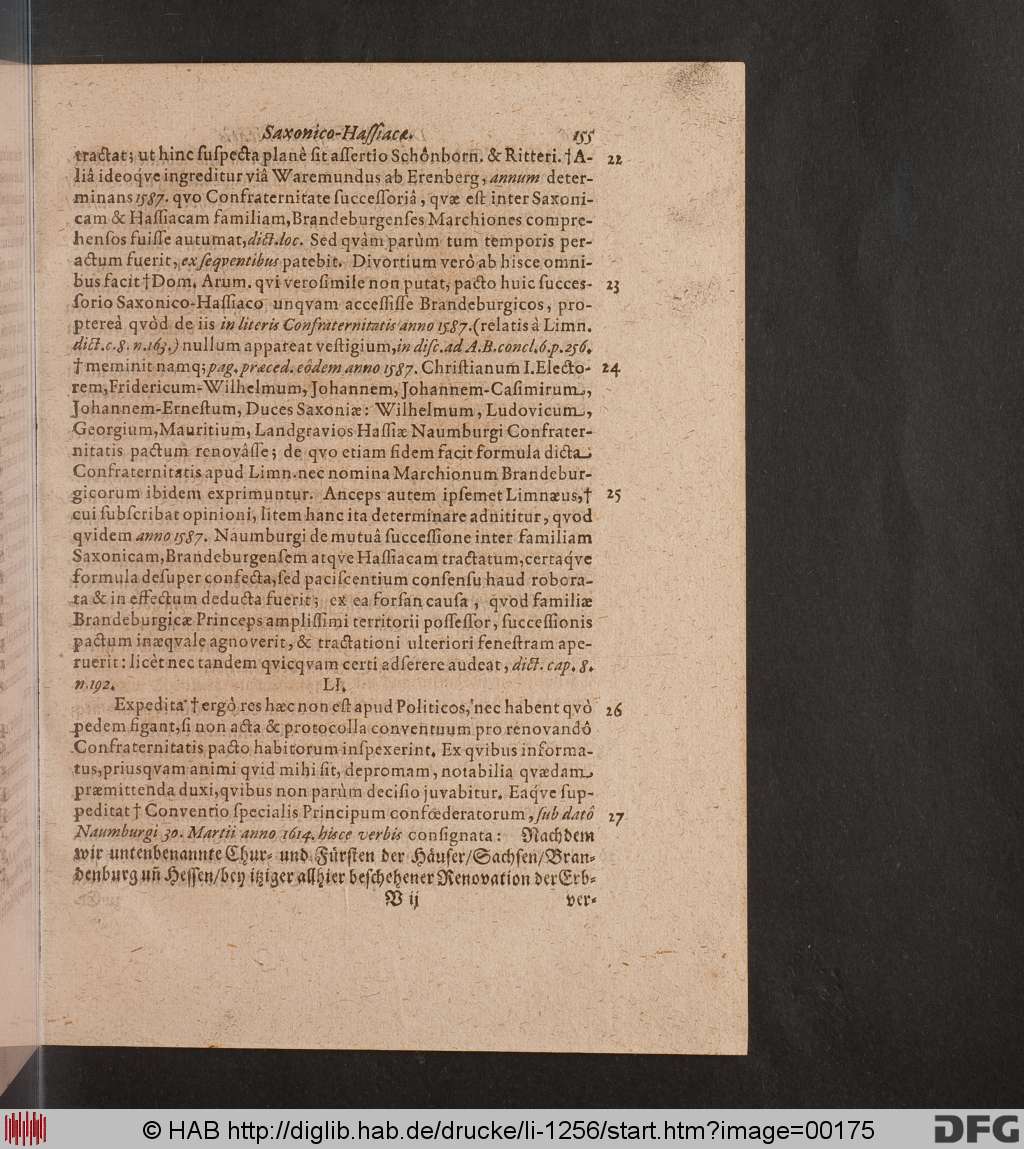 Saxonico-Haſſiacæ. 155
tractat; ut hinc ſuſpecta planè ſit aſſertio Schônborn. & Ritteri. † A- 22
liâ ideoqve ingreditur viâ Waremundus ab Erenberg, annum deter-
minans 1587. qvo Confraternitate ſucceſſoriâ, qvæ eſt inter Saxoni-
cam & Haſſiacam familiam, Brandeburgenſes Marchiones compre-
henſos fuiſſe autumat, dict. loc. Sed qvàm parùm tum temporis per-
actum fuerit, ex ſeqventibus patebit. Divortium verò ab hisce omni-
bus facit † Dom. Arum. qvi veroſimile non putat, pacto huic ſucces- 23
ſorio Saxonico-Haſſiaco unqvam acceſſiſſe Brandeburgicos, pro-
ptereà qvòd de iis in literis Confraternitatis anno 1587. (relatis à Limn.
dict. c. 8. n. 163.) nullum appareat veſtigium, in diſc. ad A.B. concl. 6. p. 256.
† meminit namq; pag. præced. eôdem anno 1587. Chriſtianum I. Electo- 24
rem, Fridericum-Wilhelmum, Johannem, Johannem-Caſimirum,
Johannem-Erneſtum, Duces Saxoniæ: Wilhelmum, Ludovicum,
Georgium, Mauritium, Landgravios Haſſiæ Naumburgi Confrater-
nitatis pactum renovâſſe; de qvo etiam fidem facit formula dicta
Confraternitatis apud Limn. nec nomina Marchionum Brandebur-
gicorum ibidem exprimuntur. Anceps autem ipſemet Limnæus, † 25
cui ſubſcribat opinioni, litem hanc ita determinare adnititur, qvod
qvidem anno 1587. Naumburgi de mutuâ ſucceſſione inter familiam
Saxonicam, Brandeburgenſem atqve Haſſiacam tractatum, certaq́ve
formula deſuper confecta, ſed paciſcentium conſenſu haud robora-
ta & in effectum deducta fuerit; ex ea forſan cauſa, qvod familiæ
Brandeburgicæ Princeps ampliſſimi territorii poſſeſſor, ſucceſſionis
pactum inæqvale agnoverit, & tractationi ulteriori feneſtram ape-
ruerit: licèt nec tandem qvicqvam certi adſerere audeat, dict. cap. 8.
n. 192. LI.
Expedita † ergò res hæc non eſt apud Politicos, nec habent qvò 26
pedem figant, ſi non acta & protocolla conventuum pro renovandô
Confraternitatis pacto habitorum inſpexerint. Ex qvibus informa-
tus, priusqvam animi qvid mihi ſit, depromam, notabilia qvædam
præmittenda duxi, qvibus non parùm deciſio juvabitur. Eaqve ſup-
peditat † Conventio ſpecialis Principum confœderatorum, ſub datô 27
Naumburgi 30. Martii anno 1614. hisce verbis conſignata: Nachdem
wir untenbenannte Chur- und Fürſten der Häuſer/Sachſen/Bran-
denburg uñ Heſſen/bey itziger allhier beſchehener Renovation der Erb-
V ij ver-
© HAB http://diglib.hab.de/drucke/li-1256/start.htm?image=00175
DFG